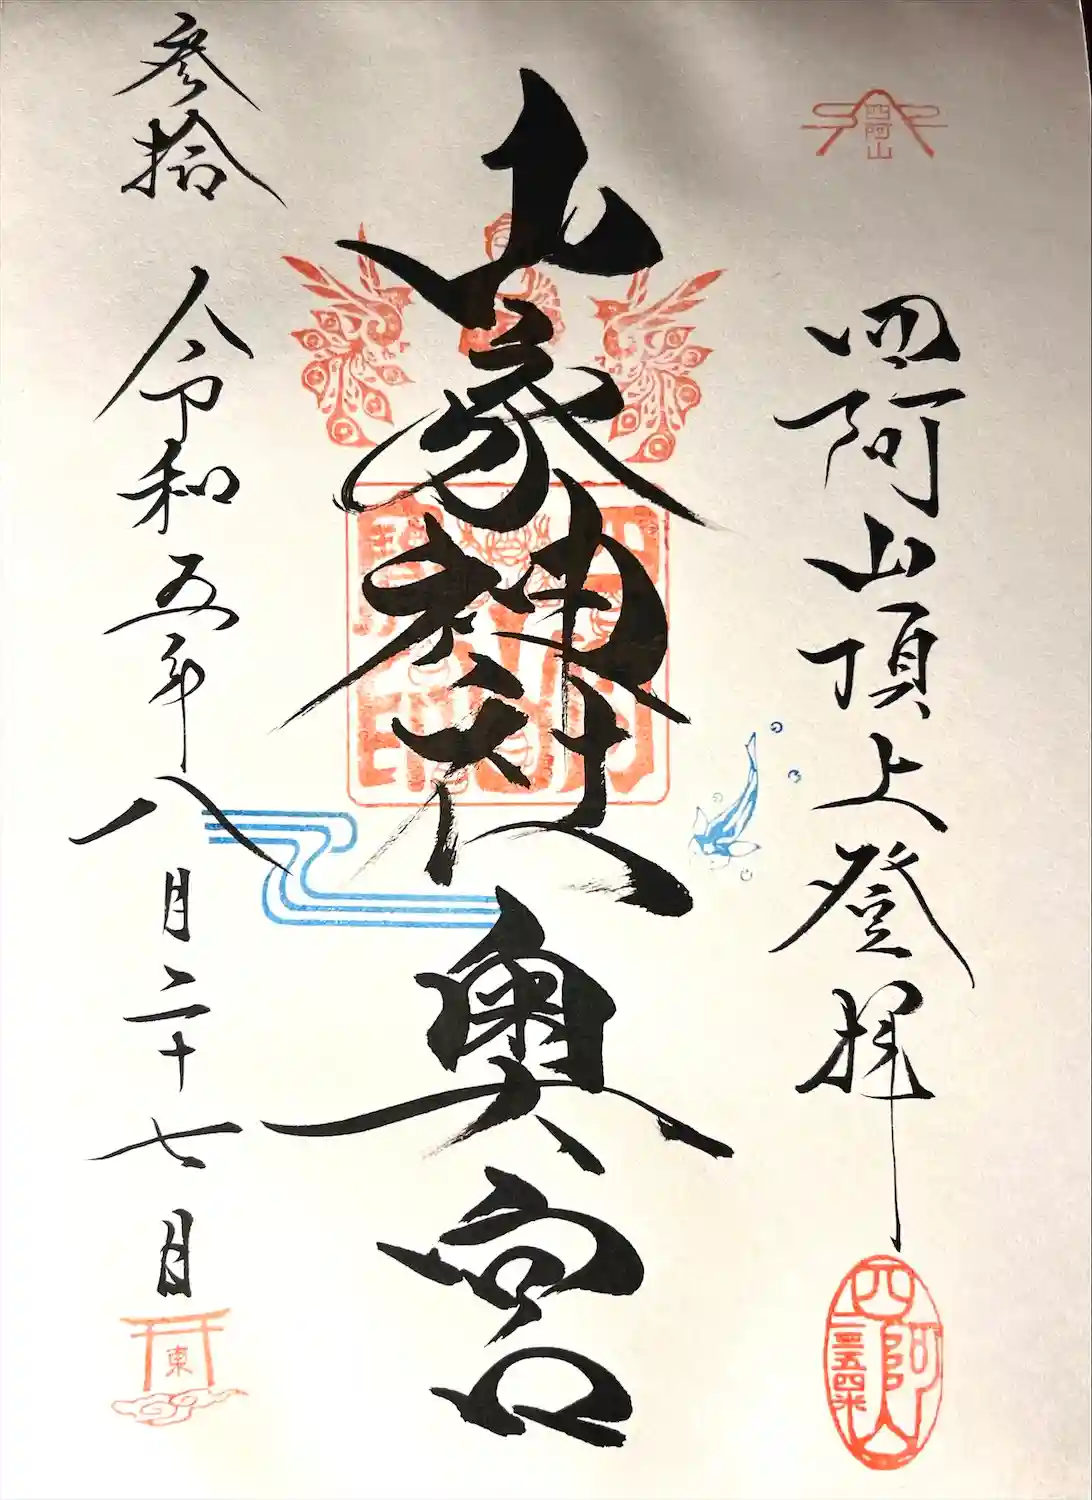 四阿山
四阿山頂上登拝
四阿山
二三五四米
山家神社奥宮
参拾
令和五年八月二十七日
東